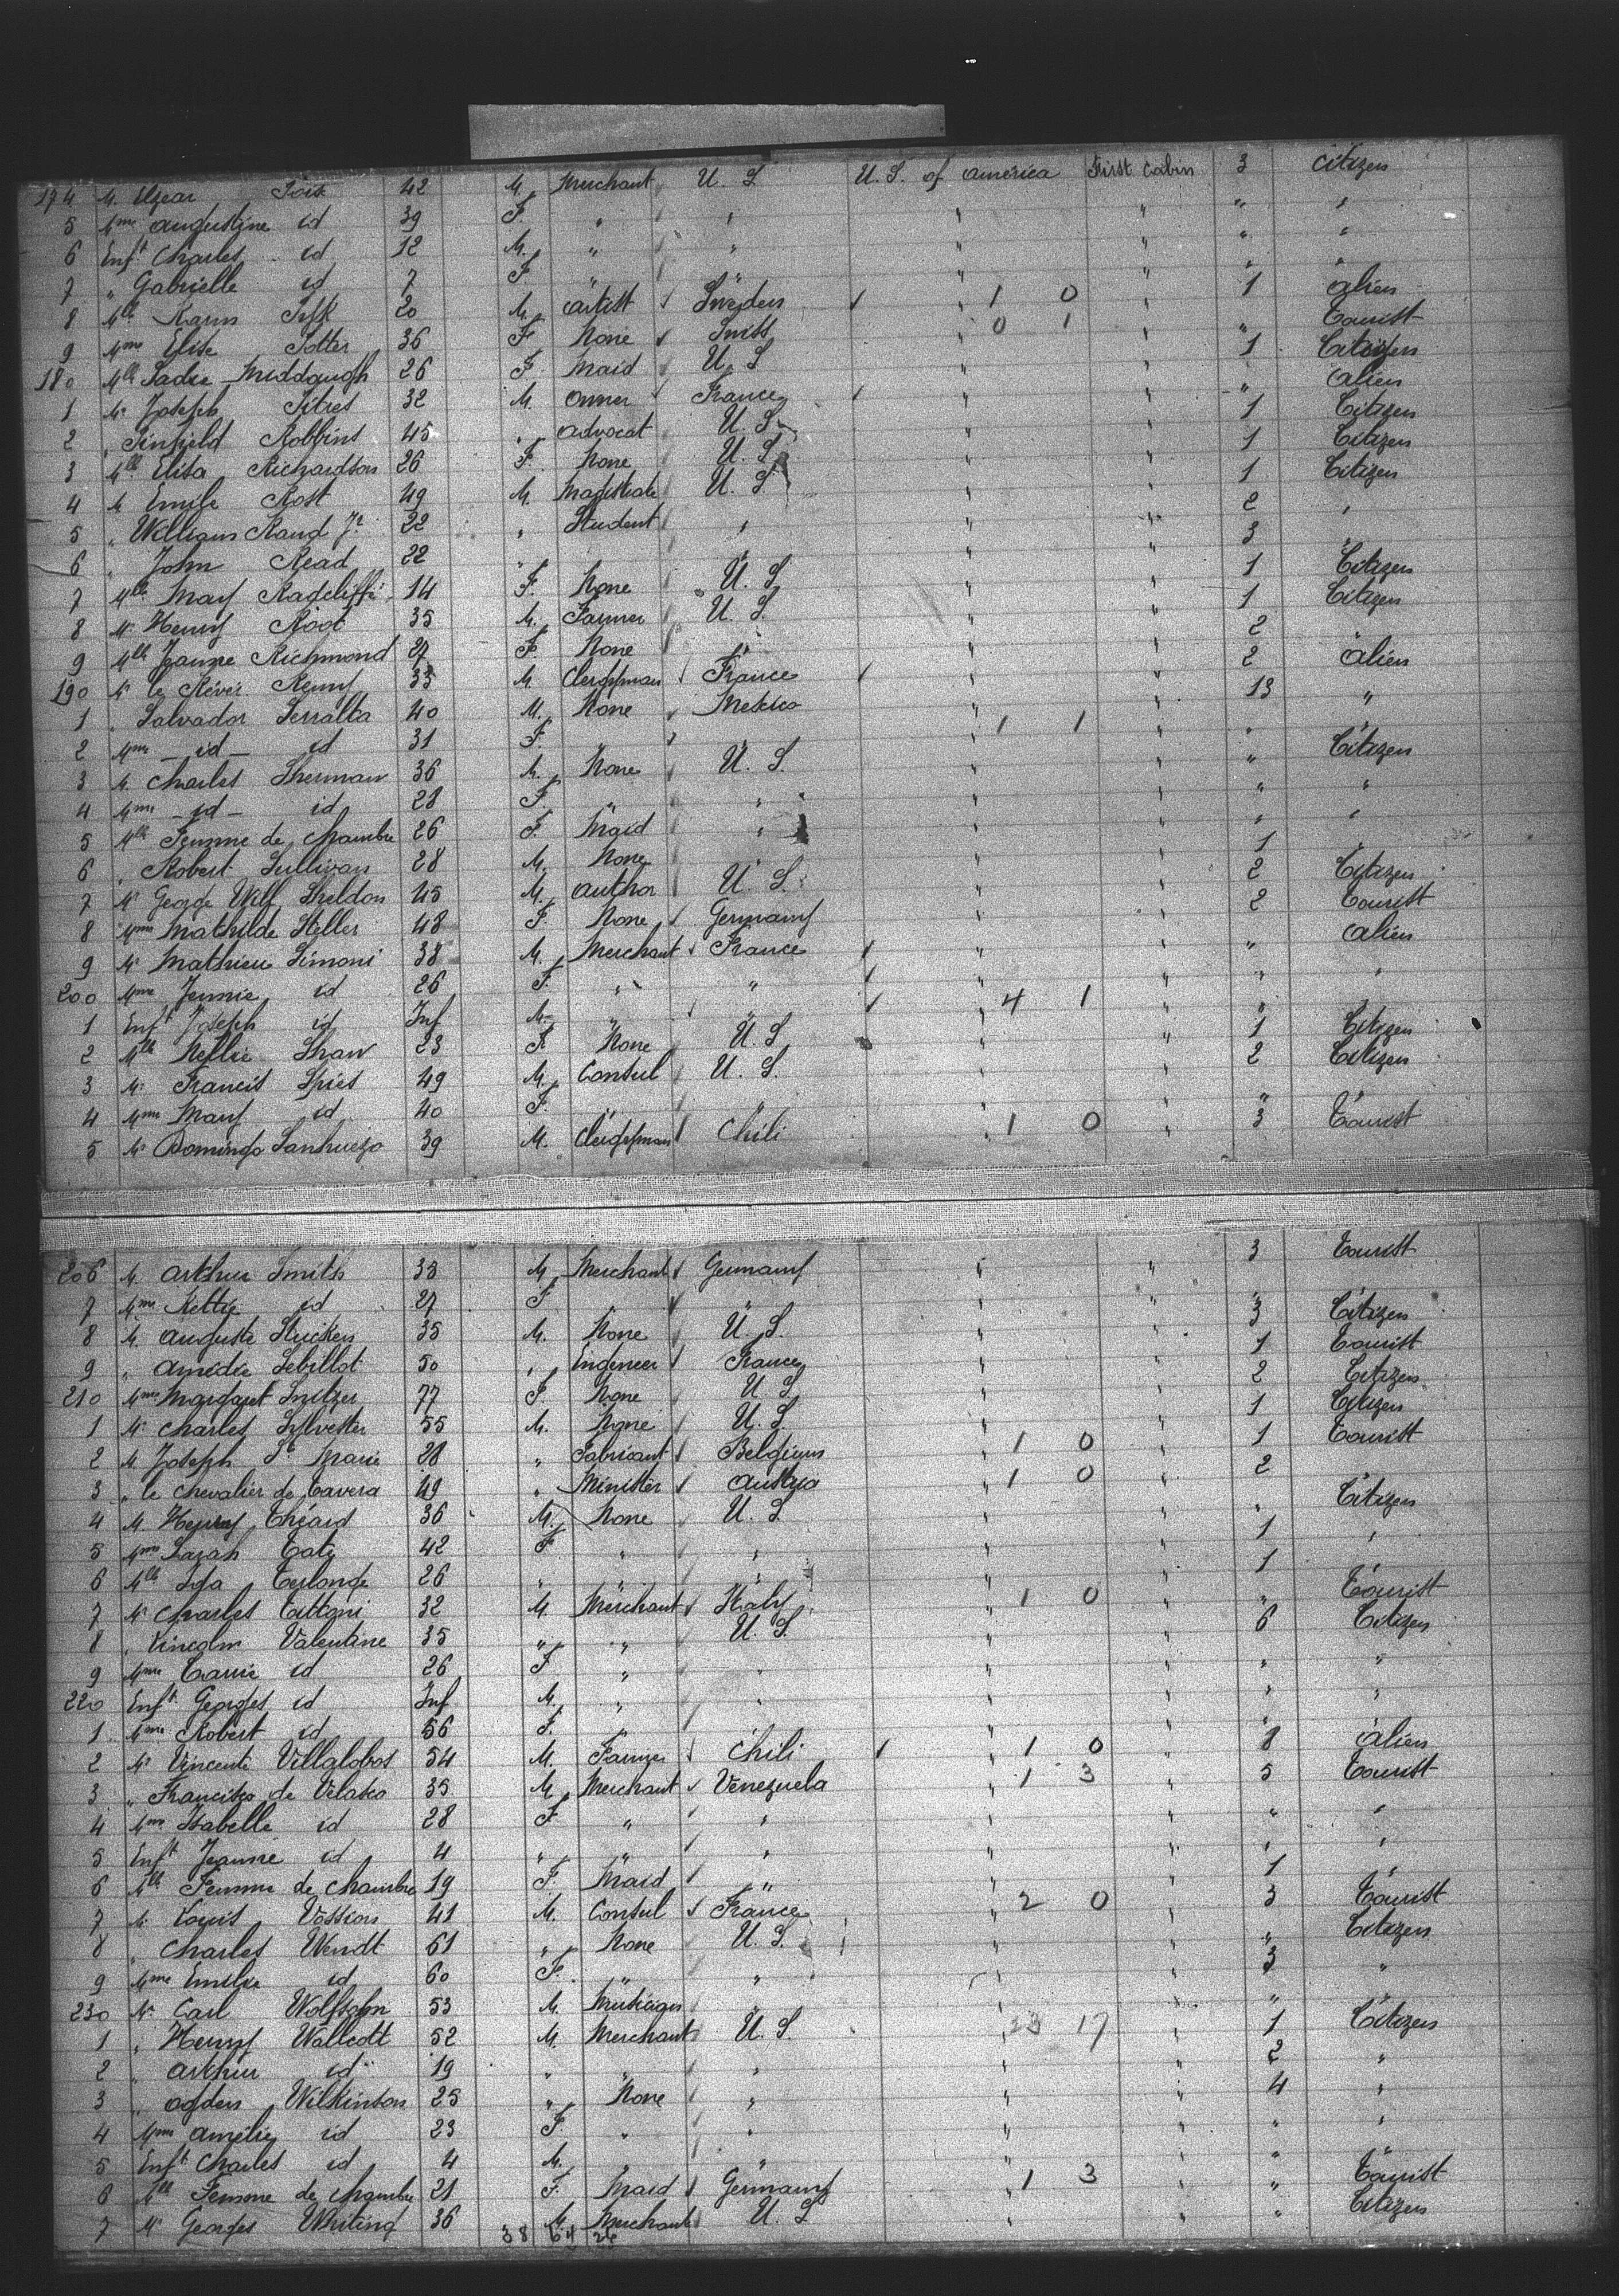 174 M. Elzear Fois 42 M. Merchant U. S. U. S. of america First Cabin 3 Citizen
5 Mme Augustine id 39 F. " " " " " "
6 Enft Charles id 12 M. " " " " " "
7 " Gabrielle id 7 F " " " " " "
8 Mlle Karin 20 M. artist Sweden " 1 0 1 alien
9 Mme Elise 36 F. None Swiss " 0 1 " Tourist
180 Mlle Sadie Middaugh 26 F Maid U. S " 1 Citizen
1 Mr Joseph Pitres 32 M. Owner France " " alien
2 " Pinfield Robbins 45 " advocat U. S. " 1 Citizen
3 Mlle Elisa Richardson 26 F. None U. S " 1 Citizen
4 M. Emile Rost 49 M. Magistrate U. S " 1 Citizen
5 " William Rand Jr 22 " Student " " 2 "
6 " John Read 22 " " " " 3 "
7 Mlle Mary Radcliffe 14 F. None U. S " 1 Citizen
8 Mr Henry Root 35 M. Farmer U. S. " 1 Citizen
9 Mlle Jeanne Richmond 27 F None " " 2 "
190 Mr le Révér. Remy 33 M. Clergyman France " 2 alien
1 " Salvador Serralta 40 M. None Mexico " 13 "
2 Mme id id 31 F. " " " 1 1 " "
3 M. Charles Sherman 36 M. None U. S. " " Citizen
4 Mme id id 28 F. " " " " "
5 Mlle Femme de chambre 26 F. Maid " " " "
6 " Robert Sullivan 28 M. None " " 1 "
7 Mr George Will Sheldon 45 M. author U. S. " 2 Citizen
8 Mme Mathilde Stiller 48 F. None Germany " 2 Tourist
9 Mr Mathieu Simoni 38 M. Merchant France " " alien
200 Mme Jennie id 26 F. " " " " "
1 Enft Joseph id Inf M. " " " 4 1 " "
2 Mlle Nellie Shaw 23 F. None U. S " 1 Citizen
3 Mr Francis Spies 49 M. Consul U. S. " 2 Citizen
4 Mme Mary id 40 F. " " " " "
5 Mr Domingo Sanhuezo 39 M. Clergyman Chili " 1 0 3 Tourist
206 M. Arthur Smith 38 M Merchant Germany " " 3 Tourist
7 Mme Kettie id 27 F " " " " "
8 M. Auguste Stucken 35 M. None U. S. " " 3 Citizen
9 " Amédée Sebillot 50 " Engineer France " " 1 Tourist
210 Mme Margaret Snelzer 77 F None U S. " " 2 Citizen
1 Mr Charles Sylvester 55 M. None U. S " " 1 Citizen
2 M. Joseph Ste Marie 28 " Fabricant Belgium " 1 0 " 1 Tourist
3 " le chevalier de Tavera 49 " Minister Austria " 1 0 " 2 "
4 M. Henry Théard 36 M. None U. S " " " Citizen
5 Mme Sarah Tate 42 F " " " " 1 "
6 Mlle Ida Terlonge 26 " " " " " 1 "
7 Mr Charles Tattoni 32 M. Merchant Italy " 1 0 " " Tourist
8 " Lincoln Valentine 35 " " U. S. " " 6 Citizen
9 Mme Carrie id 26 F " " " " " "
220 Enft Georges id Inf M. " " " " " "
1 Mme Robert id 56 F. " " " " "
2 Mr Vincente Villalobos 54 M. Farmer Chili " 1 0 " 8 alien
3 " Francisco de Velasco 35 M Merchant Venezuela " 1 3 " 5 Tourist
4 Mme Isabelle id 28 F. " " " " " "
5 Enft Jeanne id 4 " " " " " " "
6 Mlle Femme de chambre 19 F. Maid " " " 1 "
7 M. Louis Vossion 41 M. Consul France " 2 0 " 3 Tourist
8 " Charles Wendt 61 " None U. S. " " " Citizen
9 Mme Emilie id 60 F. " " " " 3 "
230 Mr Carl Wolfsohn 53 M. Musician " " " " "
1 " Henry Wallcott 52 M. Merchant U. S. 23 17 " 1 Citizen
2 " Arthur id 19 " " " " " 2 "
3 " Ogden Wilkinson 25 " None " " " 4 "
4 Mme Amelie id 23 F. " " " " " "
5 Enft Charles id 4 M. " " " " " "
6 Mlle Femme de chambre 21 F. Maid Germany " 1 3 " " Tourist
7 Mr Georges Whiting 36 M. Merchant U. S " " " Citizen
38 64 26